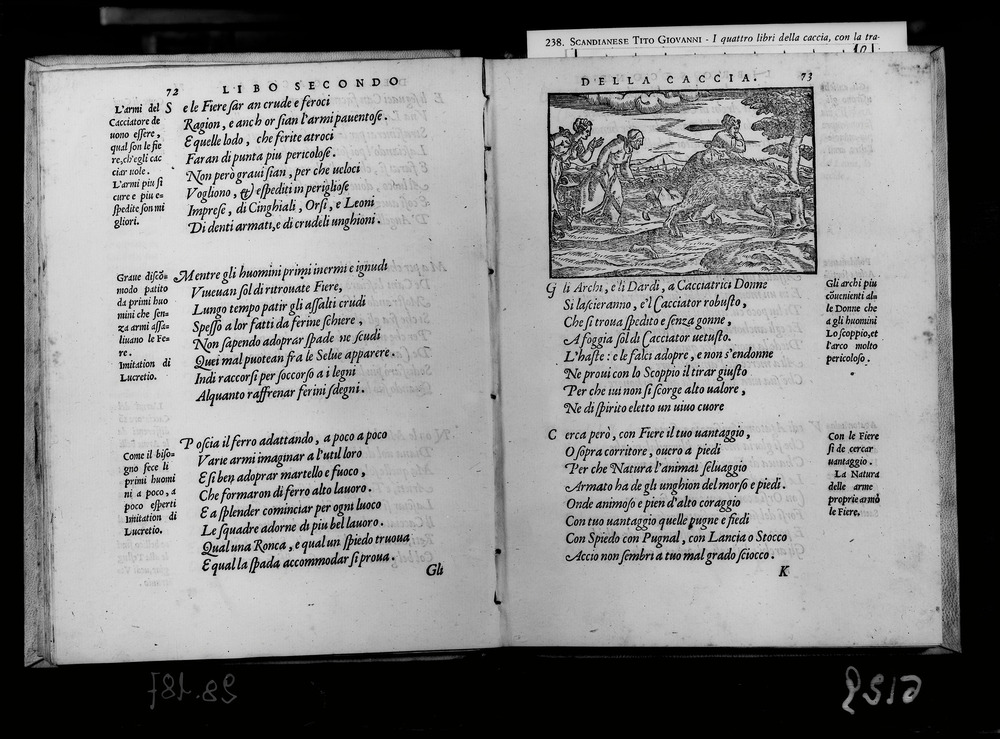 238. SCANDIANESE TITO GIOVANNI - I quattro libri della caccia, con la tra-
72 LIBO SECONDO
L'armi del
Cacciatore de
uono essere,
qual son le fie
re, ch'egli cac
ciar uole.
L'armi piu si
cure e piu e=
spedite son mi
gliori.
S e le Fiere sar an crude e feroci
Ragion, e anch or sian l'armi pauentose.
E quelle lodo, che ferite atroci
Faran di punta piu pericolose.
Non però graui sian, per che ueloci
Vogliono, & espediti in perigliose
Imprese, di Cinghiali, Orsi, e Leoni
Di denti armati, e di crudeli unghioni.
Graue discõ=
modo patito
da primi huo
mini che sen=
za armi assa=
liuano le Fe=
re.
Imitation di
Lucretio.
Mentre gli huomini primi inermi e ignudi
Viueuan sol di ritrouate Fiere,
Lungo tempo patir gli assalti crudi
Spesso a lor fatti da ferine schiere,
Non sapendo adoprar spade ne scudi
Quei mal puotean fra le Selue apparere.
Indi raccorsi per soccorso a i legni
Alquanto raffrenar ferini sdegni.
Come il biso=
gno fece li
primi huomi
ni a poco, a
poco esperti
Imitation di
Lucretio.
P oscia il ferro adattando, a poco a poco
Varie armi imaginar a l'util loro
E si ben adoprar martello e fuoco,
Che formaron di ferro alto lauoro.
E a splender cominciar per ogni luoco
Le squadre adorne di piu bel lauoro.
Qual una Ronca, e qual un spiedo truoua
E qual la spada accommodar si proua.
Gli
DELLA CACCIA. 73
G li Archi, e li Dardi, a Cacciatrici Donne
Si lascieranno, e'l Cacciator robusto,
Che si troua spedito e senza gonne,
A foggia sol di Cacciator uetusto.
L'haste: e le falci adopre, e non s'endonne
Ne proui con lo Scoppio il tirar giusto
Per che iui non si scorge alto ualore,
Ne di spirito eletto un uiuo cuore
Gli archi piu
cõuenienti al=
le Donne che
a gli huomini
Lo scoppio, et
l'arco molto
pericoloso.
C erca però, con Fiere il tuo uantaggio,
O sopra corritore, ouero a piedi
Per che Natura l'animal seluaggio
Armato ha de gli unghion del morso e piedi.
Onde animoso e pien d'alto coraggio
Con tuo uantaggio quelle pugne e fiedi
Con Spiedo con Pugnal, con Lancia o Stocco
Accio non sembri a tuo mal grado sciocco.
Con le Fiere
si de cercar
uantaggio.
La Natura
delle arme
proprie armò
le Fiere.
K